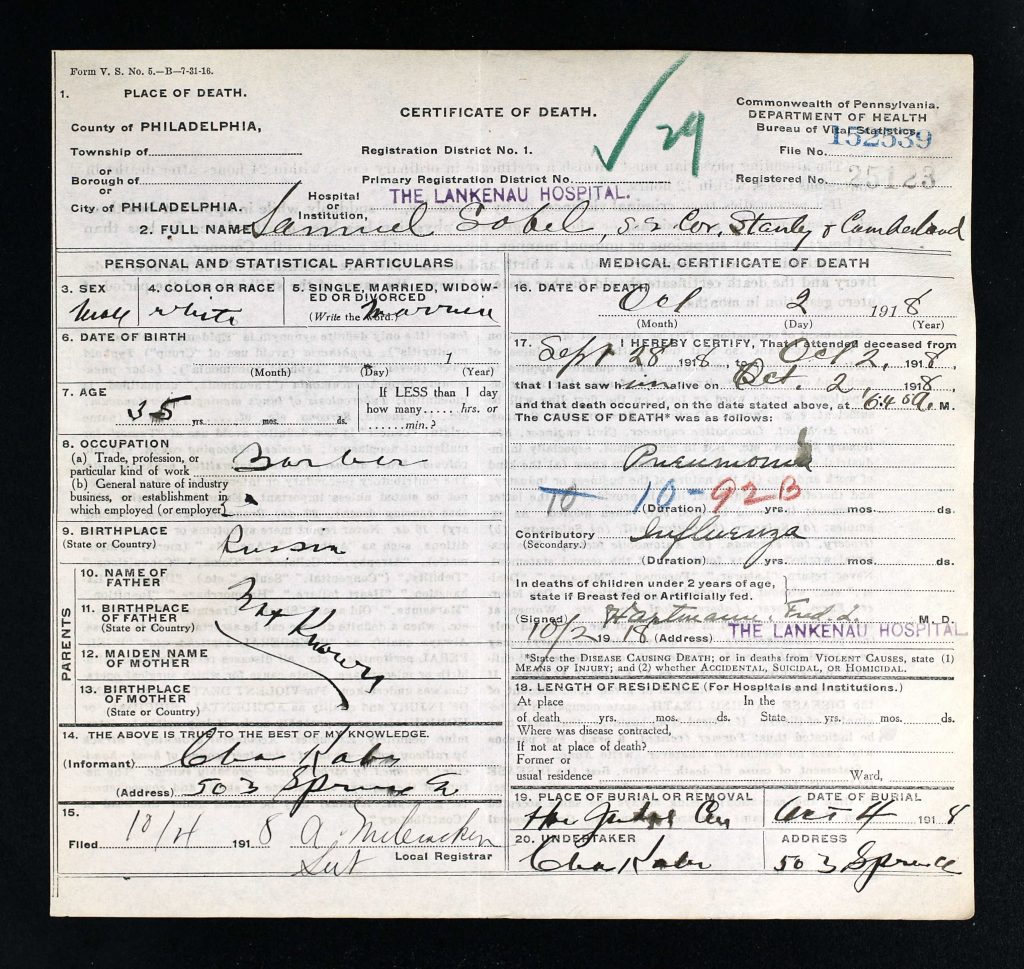 Form V. S. No. 5.—B—7-31-16.
1. PLACE OF DEATH.
County of PHILADELPHIA,
Township of
or
Borough of
or
City of PHILADELPHIA.
CERTIFICATE OF DEATH.
Registration District No. 1.
Primary Registration District No.
Hospital or Institution, THE LANKENAU HOSPITAL.
√ 29
Commonwealth of Pennsylvania.
DEPARTMENT OF HEALTH
Bureau of Vital Statistics.
File No. 152539
Registered No. 25123
2. FULL NAME Samuel Sobel, Cor. Stanley & Cumberland
PERSONAL AND STATISTICAL PARTICULARS
3. SEX Male
4. COLOR OR RACE White
5. SINGLE, MARRIED, WIDOWED OR DIVORCED
(Write the word.) Married
6. DATE OF BIRTH
1
(Month) (Day) (Year)
7. AGE
35 yrs. mos. ds.
If LESS than 1 day
how many..... hrs. or
......min.?
8. OCCUPATION
(a) Trade, profession, or
particular kind of work Barber
(b) General nature of industry
business, or establishment in
which employed (or employer)
9. BIRTHPLACE
(State or Country) Russia
PARENTS
10. NAME OF FATHER
11. BIRTHPLACE OF FATHER
(State or Country)
Not Known
12. MAIDEN NAME OF MOTHER
13. BIRTHPLACE OF MOTHER
(State or Country)
14. THE ABOVE IS TRUE TO THE BEST OF MY KNOWLEDGE.
(Informant)
(Address) 503 Spruce St
15.
Filed 10/4 1918 A.
Local Registrar
MEDICAL CERTIFICATE OF DEATH
16. DATE OF DEATH
Oct 2 1918
(Month) (Day) (Year)
17. I HEREBY CERTIFY, That I attended deceased from
Sept 28 1918, to Oct 2, 1918,
that I last saw him alive on Oct. 2, 1918,
and that death occurred, on the date stated above, at M.
The CAUSE OF DEATH* was as follows:
Pneumonia
10 10-92B
(Duration) yrs. mos. ds.
Contributory Influenza
(Secondary.)
(Duration) yrs. mos. ds.
In deaths of children under 2 years of age,
state if Breast fed or Artificially fed.
(Signed) Hartmann, Fred. L. M. D.
10/2 1918 (Address) THE LANKENAU HOSPITAL
*State the DISEASE CAUSING DEATH; or in deaths from VIOLENT CAUSES, state (1)
MEANS OF INJURY; and (2) whether ACCIDENTAL, SUICIDAL, OR HOMICIDAL.
18. LENGTH OF RESIDENCE (For Hospitals and Institutions.)
At place In the
of death yrs. mos. ds. State yrs. mos. ds.
Where was disease contracted,
If not at place of death?
Former or
usual residence Ward,
19. PLACE OF BURIAL OR REMOVAL
DATE OF BURIAL
Oct 4 1918
20. UNDERTAKER
ADDRESS
503 Spruce